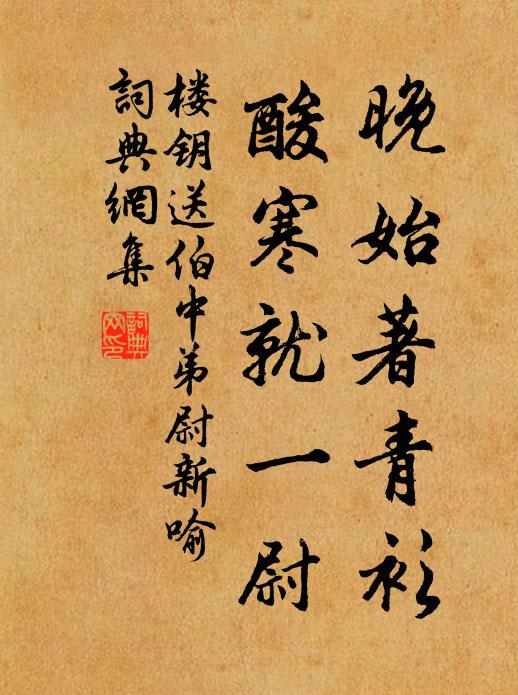 晚始著青衫
酸寒就一尉
楼钥送伯中弟尉新喻
詞典網集
詞典